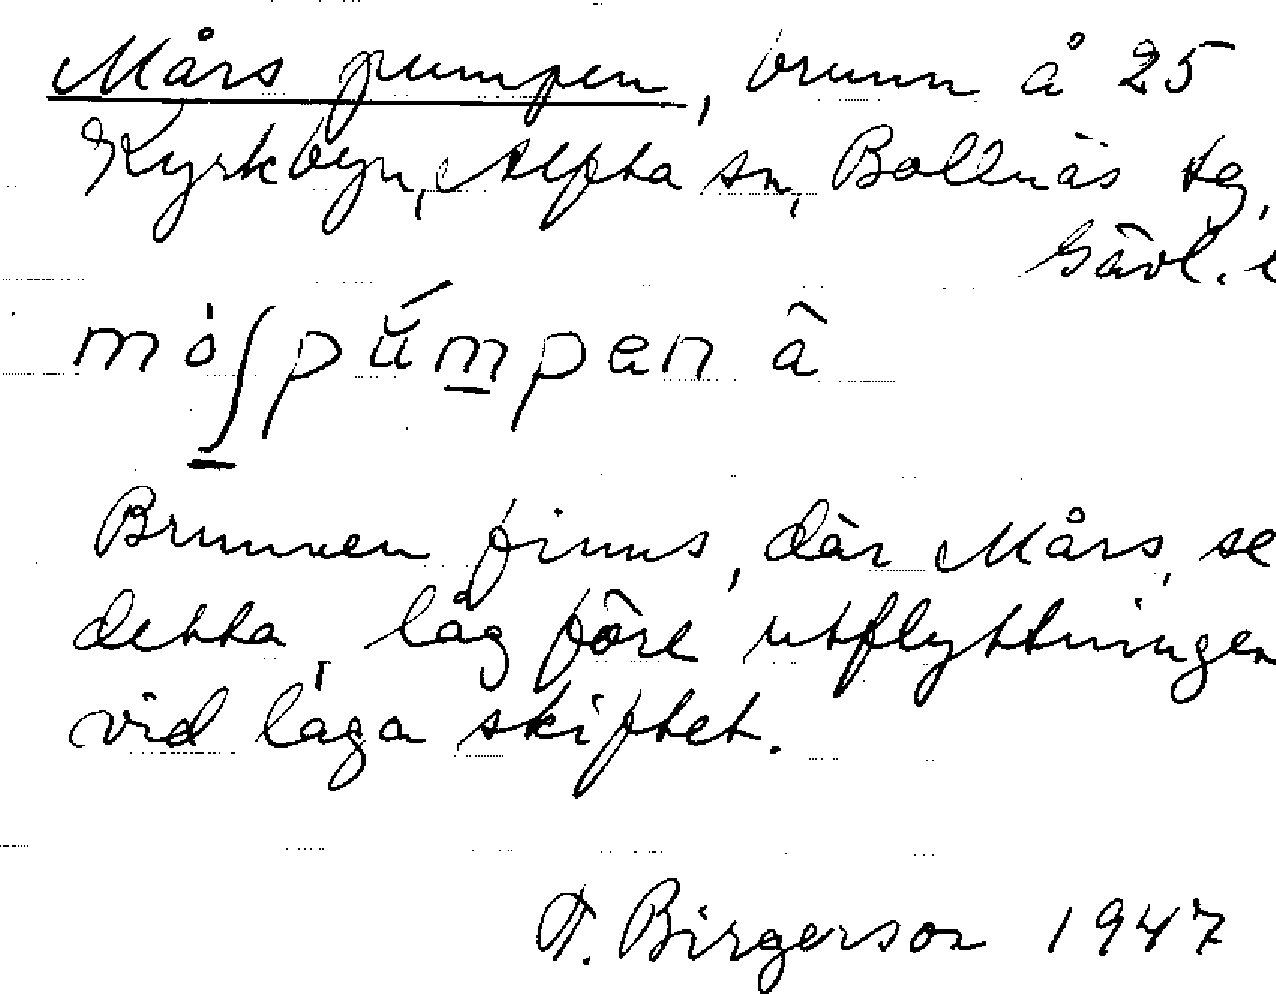 Mårs pumpen, brunn å 25
Kyrkbyn, Alfta sn, Bollnäs tg,
Gävl. l
Brunnen finns, där Mårs, se
detta, låg före utflyttningen
vid laga skiftet.
F. Birgerson 1947